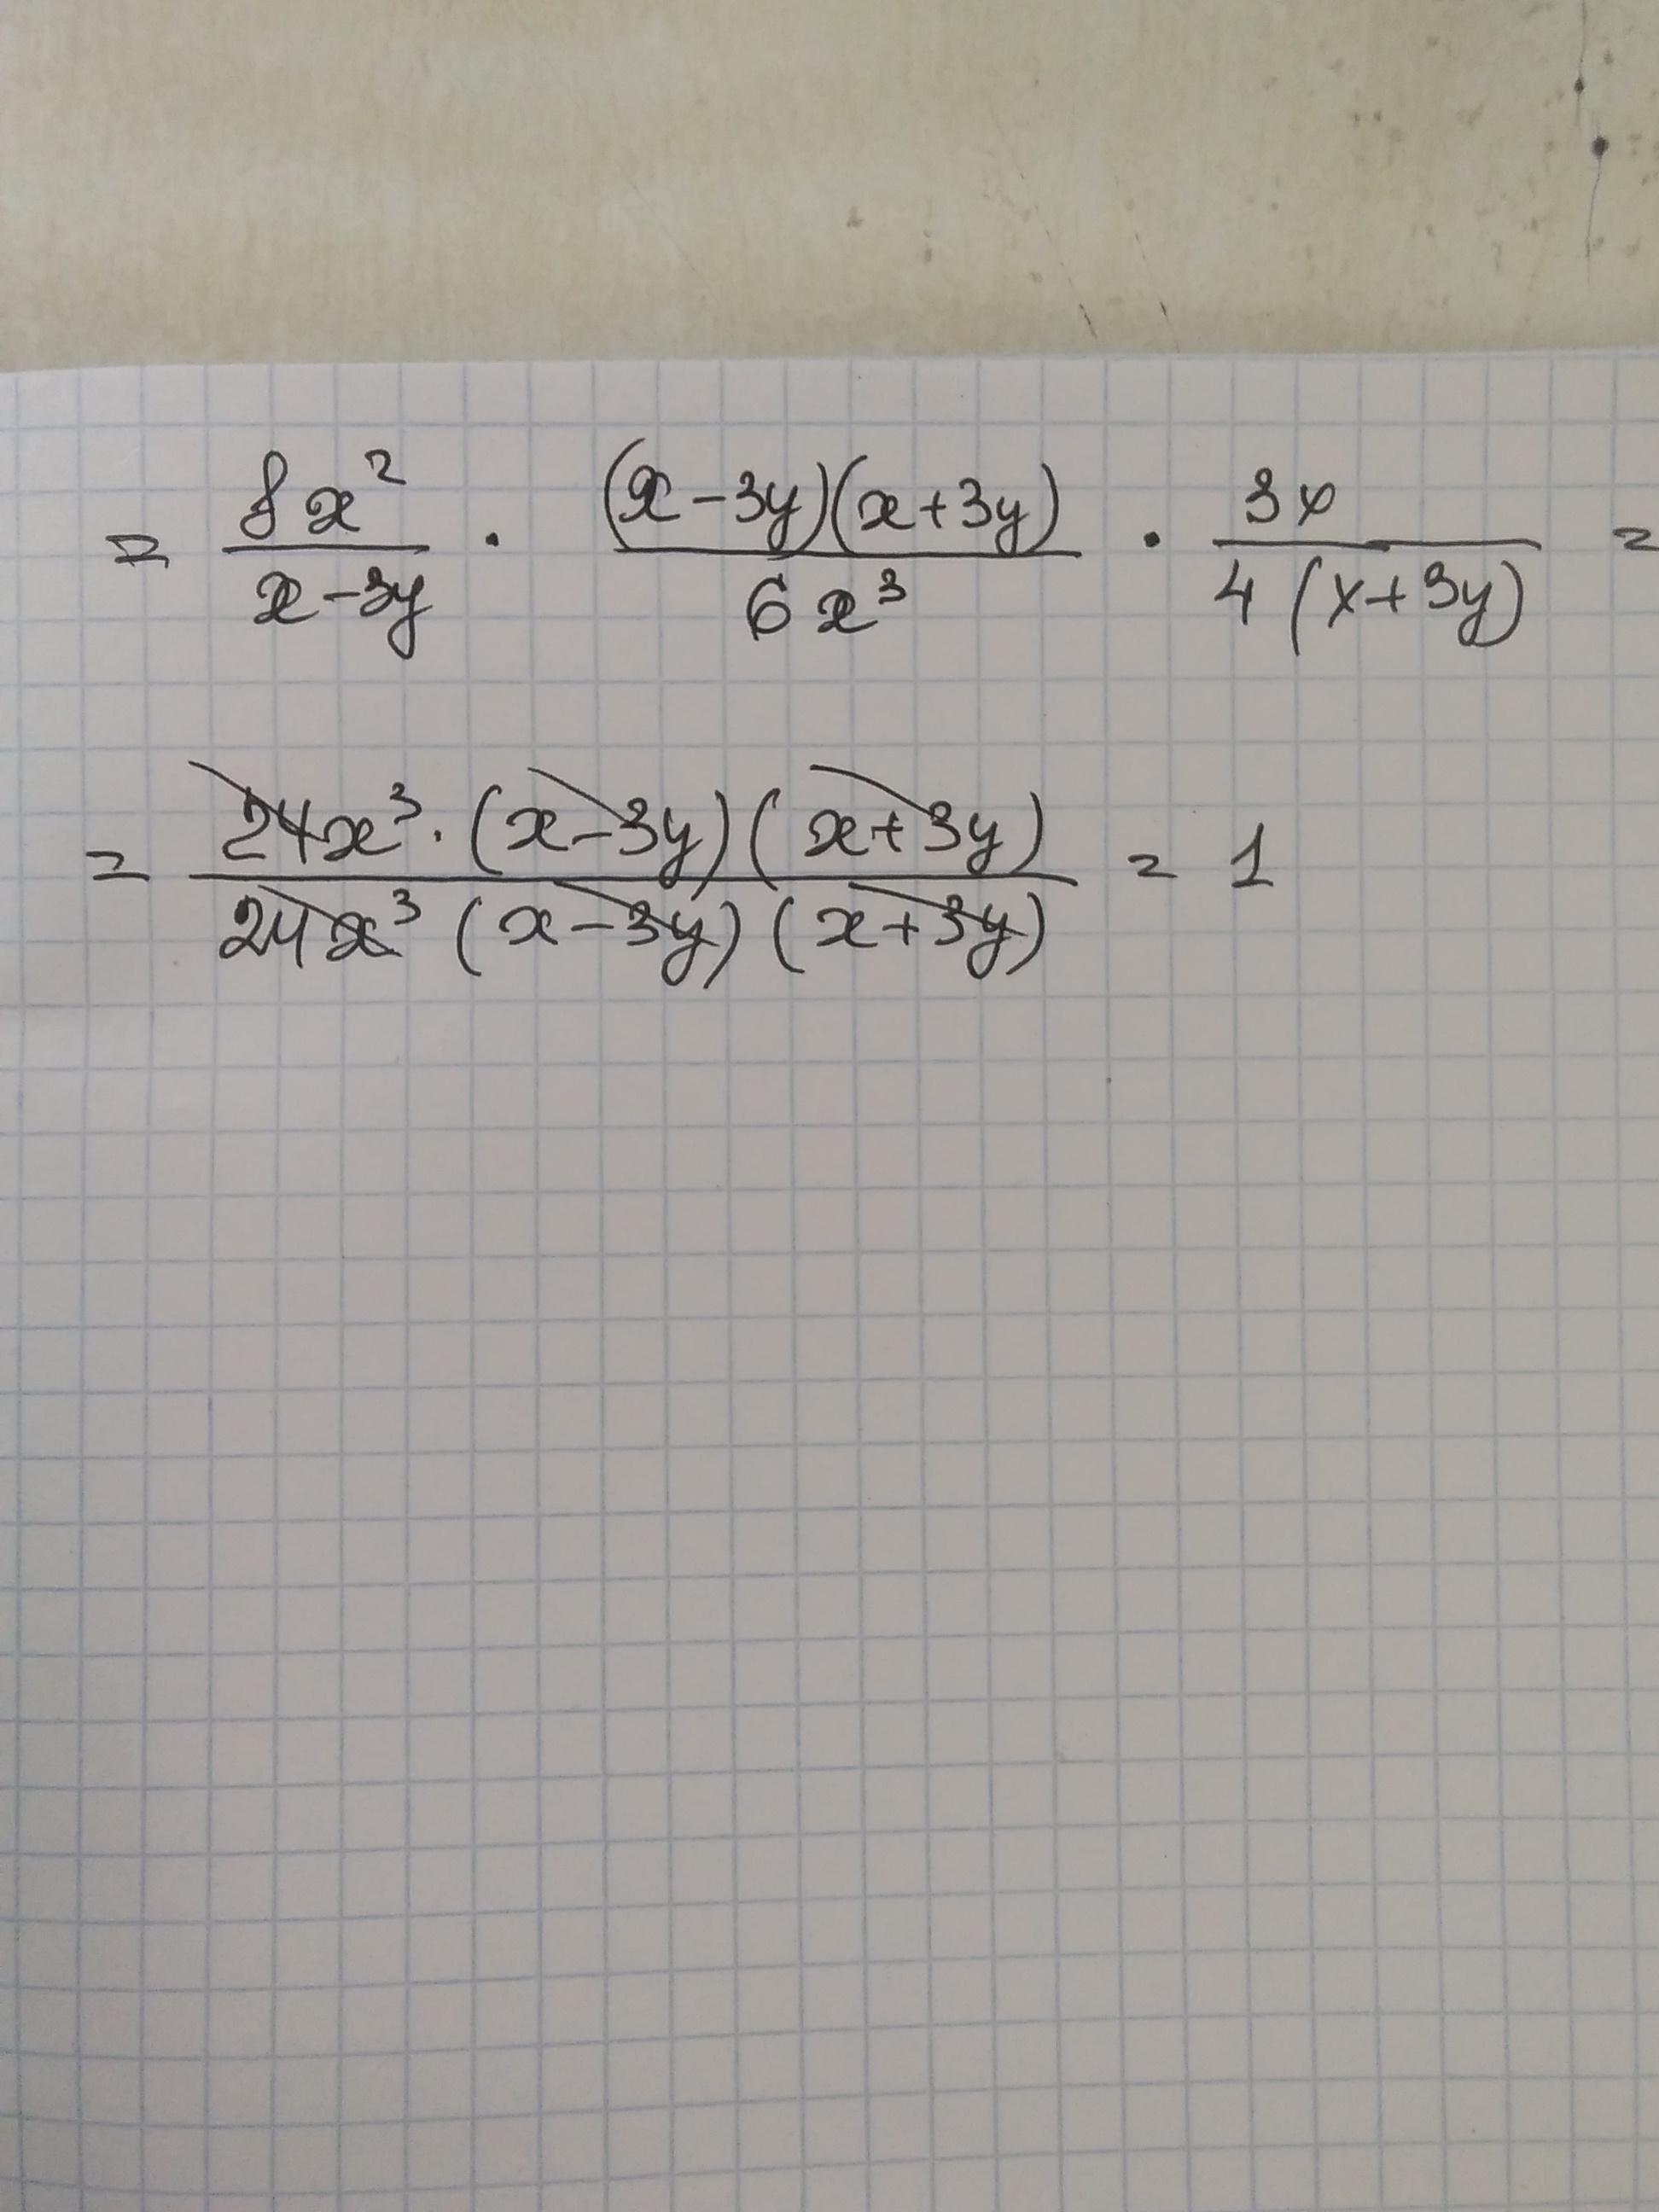 = 8x²/(x-3y) · (x-3y)(x+3y)/6x³ · 3x/4(x+3y) =
= 24x³·(x-3y)(x+3y)/24x³(x-3y)(x+3y) = 1